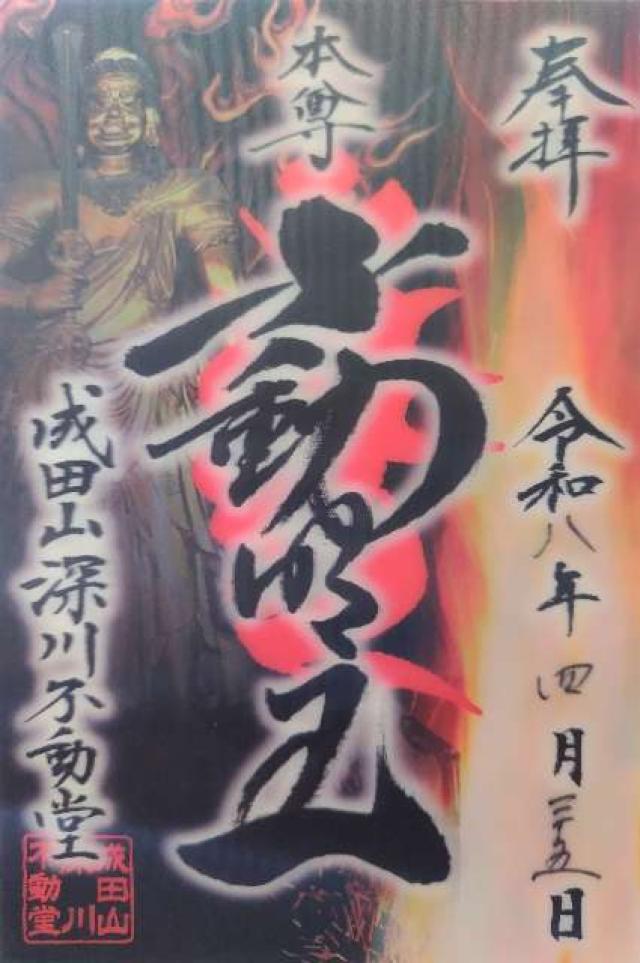 奉拝
令和八年四月二十五日
本尊
不動明王
成田山深川不動堂
成田山
深川
不動堂